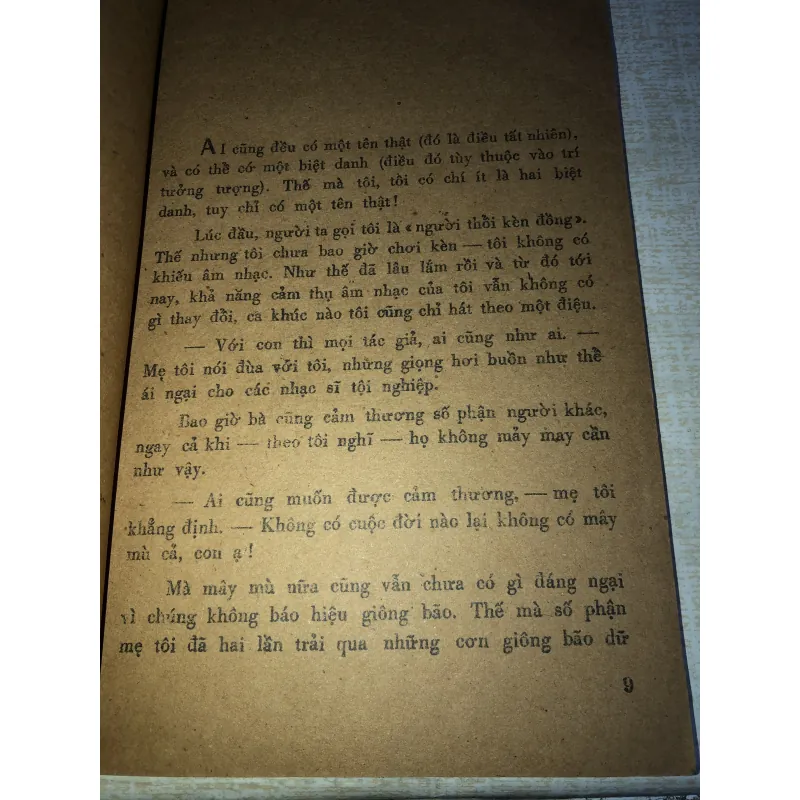 AI cũng đều có một tên thật (đó là điều tất nhiên),
và có thể có một biệt danh (điều đó tùy thuộc vào trí
tưởng tượng). Thế mà tôi, tôi có chí ít là hai biệt
danh, tuy chỉ có một tên thật!
Lúc đầu, người ta gọi tôi là «người thổi kèn đồng».
Thế nhưng tôi chưa bao giờ chơi kèn — tôi không có
khiếu âm nhạc. Như thế đã lâu lắm rồi và từ đó tới
nay, khả năng cảm thụ âm nhạc của tôi vẫn không có
gì thay đổi, ca khúc nào tôi cũng chỉ hát theo một điệu.
— Với con thì mọi tác giả, ai cũng như ai. —
Mẹ tôi nói đùa với tôi, những giọng hơi buồn như thể
ái ngại cho các nhạc sĩ tội nghiệp.
Bao giờ bà cũng cảm thương số phận người khác,
ngay cả khi — theo tôi nghĩ — họ không mảy may cần
như vậy.
— Ai cũng muốn được cảm thương, — mẹ tôi
khẳng định. — Không có cuộc đời nào lại không có mây
mù cả, con ạ!
Mà mây mù nữa cũng vẫn chưa có gì đáng ngại
vì chúng không báo hiệu giông bão. Thế mà số phận
mẹ tôi đã hai lần trải qua những cơn giông bão dữ
9